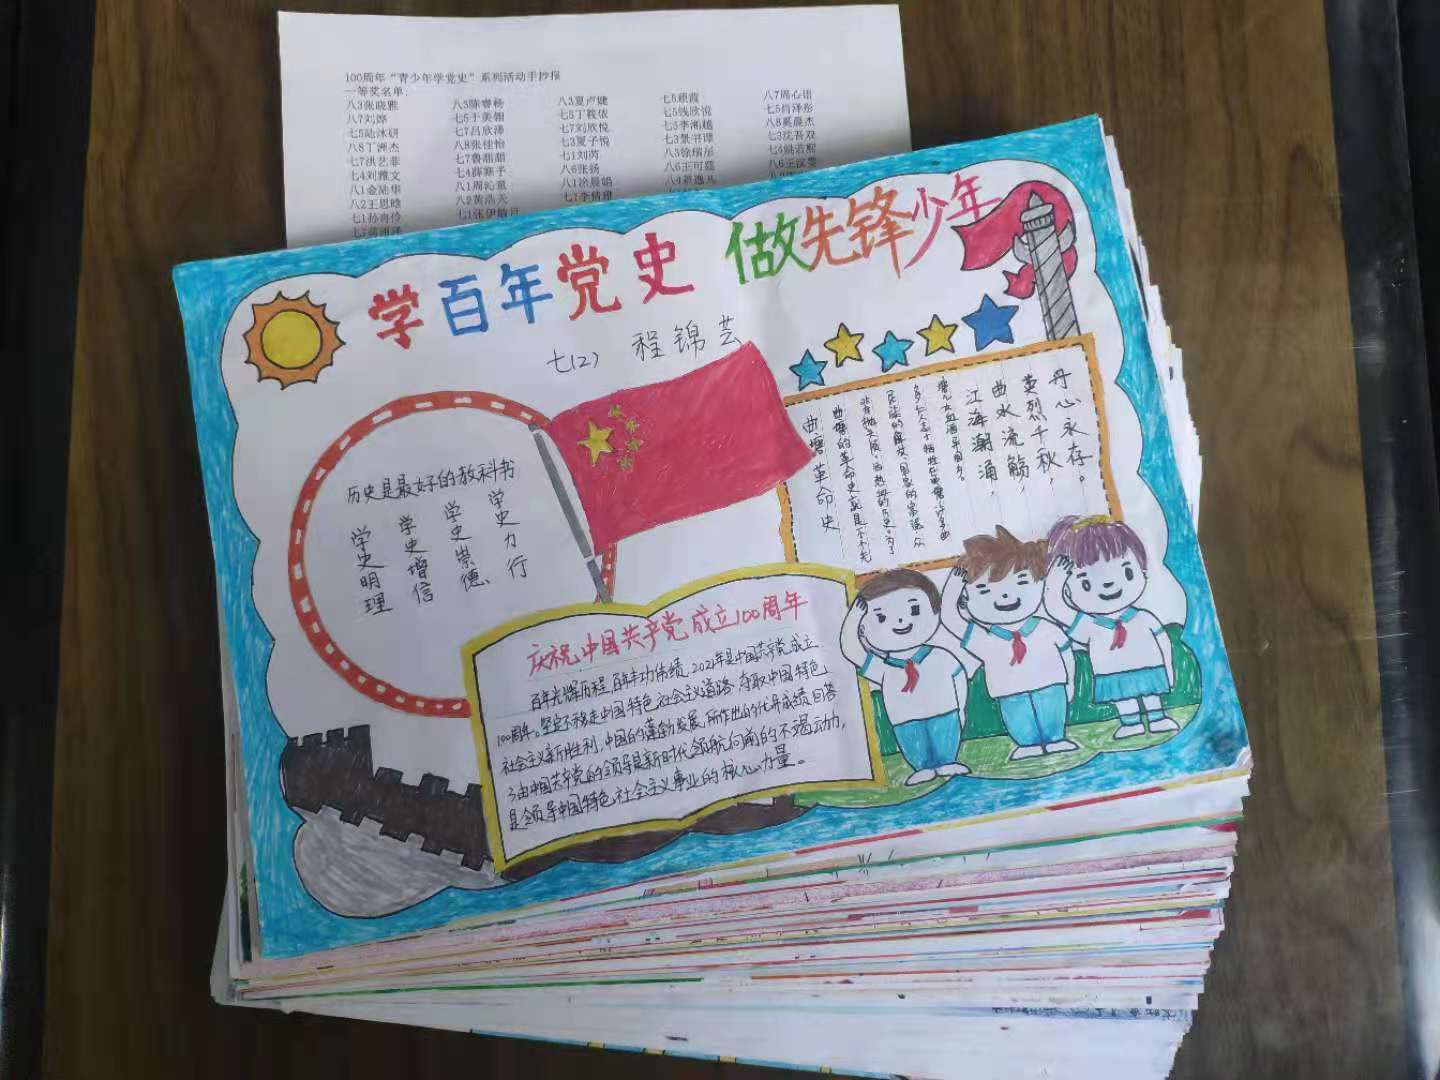 100周年“青少年学党史”系列活动手抄报
一等奖名单：
八3张晓雅 八3陈睿杨 八3夏卢婕 七5顾霞 八7周心语
八7刘烨 七5于美翎 七5丁筱依 七5钱欣悦 七5肖泽彤
七5陆沐研 七7吕欣泽 七7刘欣悦 七5李湘越 八8奚晨杰
八8丁洲杰 八8张佳怡 七3夏子悦 七3景书谭 七3沈吾双
七7洪艺菲 七7鲁甜甜 七1刘芮 八3徐瑞彤 七4姚若熙
七4刘雅文 七4薛雅予 八6张扬 八6王可莛 八6王汉雯
八1金陆华 八1周沁童 八1徐晨皓
八2王思晗 八2黄浩天 七1李倩雅
七1孙冉伶 七1张伊晗月
学百年党史 做先锋少年
七(2) 程锦芸
历史是最好的教科书
学史明理
学史增信
学史崇德
学史力行
丹心永存。
英烈千秋，
曲水流觞，
江海潮涌，
曲塘革命史
庆祝中国共产党成立100周年
百年光辉历程，百年丰功伟绩。2021年是中国共产党成立
100周年。坚定不移走中国特色社会主义道路，夺取中国特色
社会主义新胜利，中国的蓬勃发展，所作出的优异成绩回答
了由中国共产党的领导是新时代领航向前的不竭动力，
是领导中国特色社会主义事业的核心力量。